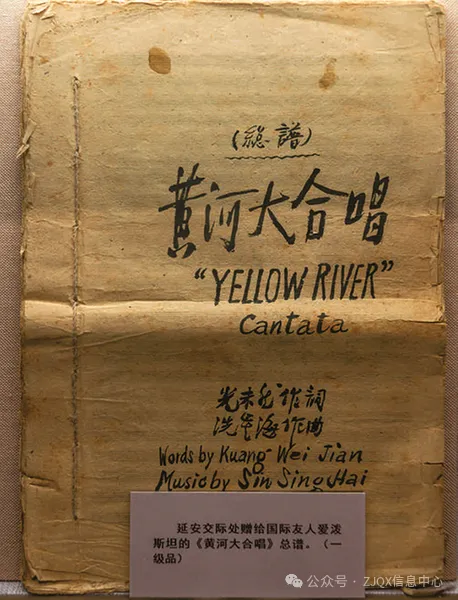 (總譜)
黄河大合唱
"YELLOW RIVER"
Cantata
光未然作詞
冼星海作曲
Words by Kuang Wei Jian
Music by Sin Sing Hai
延安交际处赠给国际友人爱泼
斯坦的《黄河大合唱》总谱。（一
级品）
公众号 · ZJQX信息中心